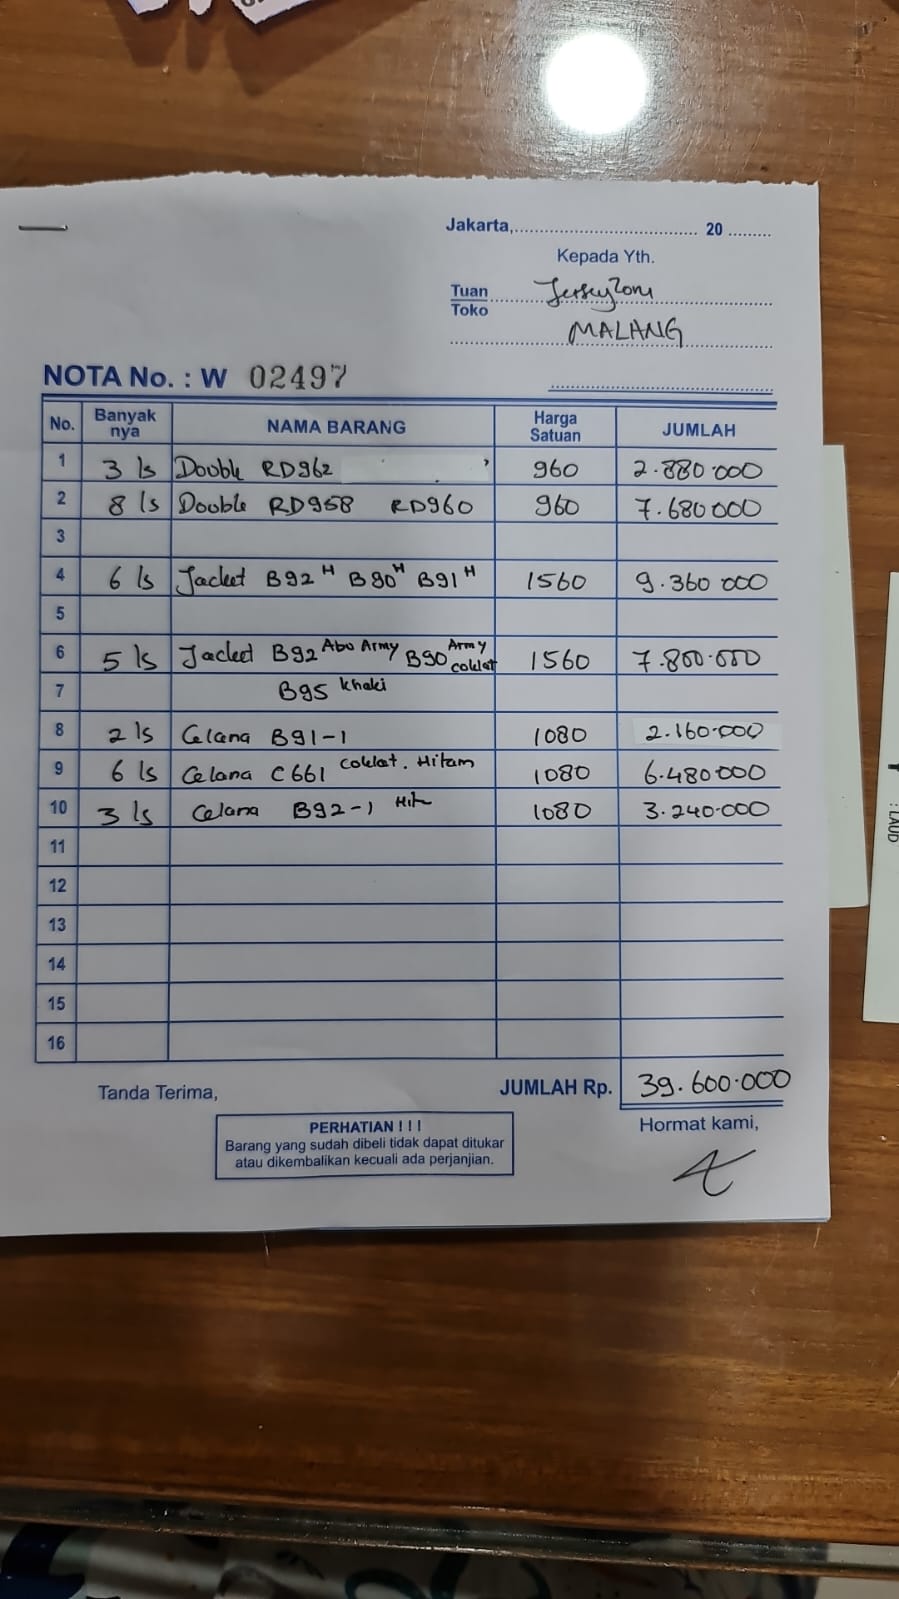 Jakarta,.................................... 20 .........
Kepada Yth.
Tuan JerseyZone
Toko
MALANG
NOTA No. : W 02497
No. Banyak nya NAMA BARANG Harga Satuan JUMLAH
1 3 ls Double RD962 960 2.880.000
2 8 ls Double RD958 RD960 960 7.680.000
3
4 6 ls Jacket B92 H B90 H B91 H 1560 9.360 000
5
6 5 ls Jacket B92 Abu Army B90 Army coklat 1560 7.800.000
7 B95 khaki
8 2 ls Celana B91-1 1080 2.160.000
9 6 ls Celana C661 Coklat. Hitam 1080 6.480.000
10 3 ls Celana B92-1 1080 3.240.000
11
12
13
14
15
16
Tanda Terima, JUMLAH Rp. 39.600.000
PERHATIAN ! ! ! Hormat kami,
Barang yang sudah dibeli tidak dapat ditukar
atau dikembalikan kecuali ada perjanjian.